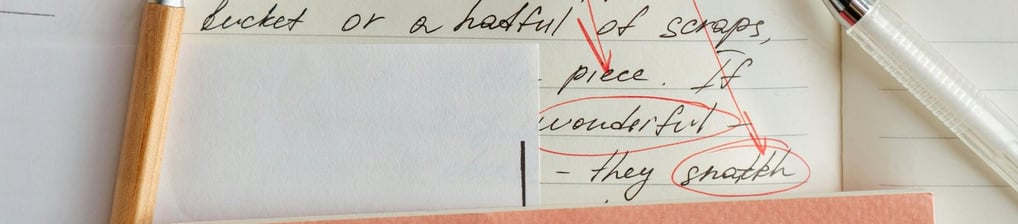 bucket or a hatful of scraps,
piece. If
wonderful -
- they snatkh